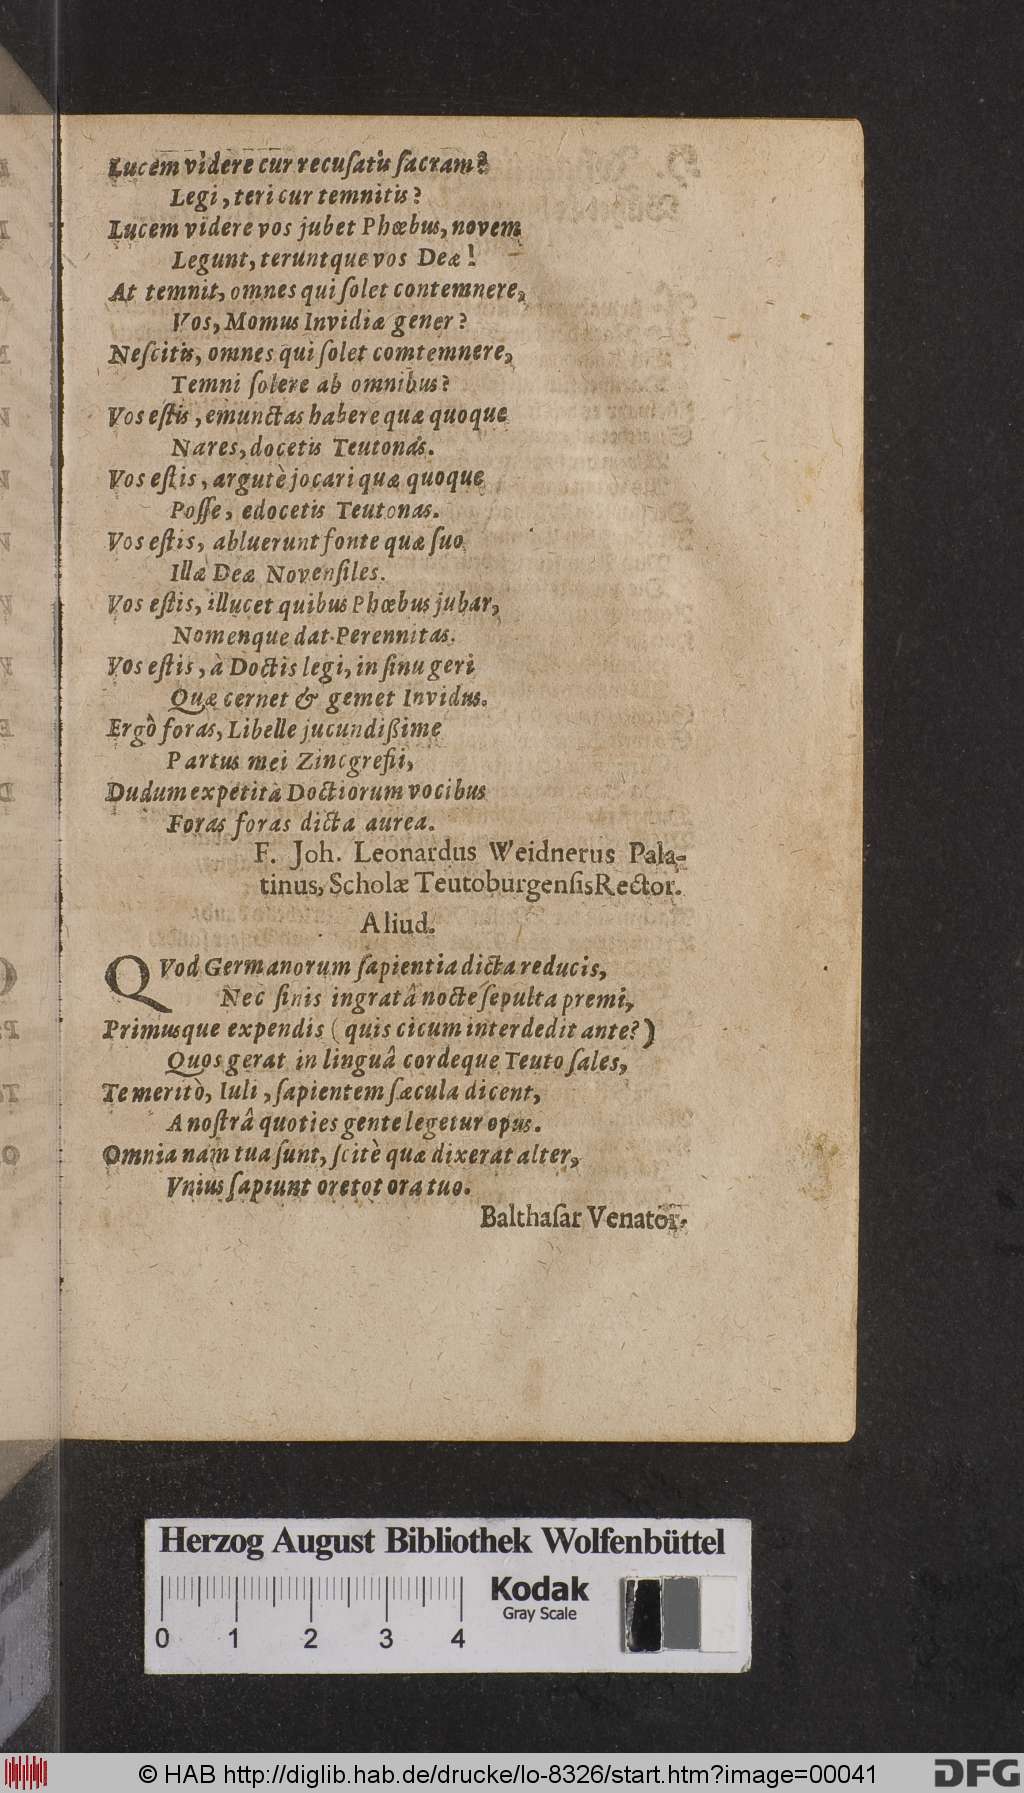 Lucem videre cur recuſatis ſacram?
Legi, teri cur temnitis?
Lucem videre vos jubet Phœbus, novem
Legunt, teruntque vos Deæ!
At temnit, omnes qui ſolet contemnere,
Vos, Momus Invidiæ gener?
Neſcitis, omnes qui ſolet comtemnere,
Temni ſolere ab omnibus?
Vos eſtis, emunctas habere quæ quoque
Nares, docetis Teutonas.
Vos eſtis, argutè jocari quæ quoque
Poſſe, edocetis Teutonas.
Vos eſtis, abluerunt fonte quæ ſuo
Illæ Deæ Novenſiles.
Vos eſtis, illucet quibus Phœbus jubar,
Nomenque dat Perennitas.
Vos eſtis, à Doctis legi, in ſinu geri
Quæ cernet & gemet Invidus.
Ergò foras, Libelle jucundißime
Partus mei Zincgrefii,
Dudum expetita Doctiorum vocibus
Foras foras dicta aurea.
F. Joh. Leonardus Weidnerus Pala-
tinus, Scholæ Teutoburgenſis Rector.
Aliud.
QVod Germanorum ſapientia dicta reducis,
Nec ſinis ingratâ nocte ſepulta premi,
Primusque expendis (quis cicum interdedit ante?)
Quos gerat in linguâ cordeque Teuto ſales,
Te meritò, Iuli, ſapientem ſæcula dicent,
A noſtrâ quoties gente legetur opus.
Omnia nam tua ſunt, ſcitè quæ dixerat alter,
Vnius ſapiunt ore tot ora tuo.
Balthaſar Venator.
Herzog August Bibliothek Wolfenbüttel
Kodak
Gray Scale
0 1 2 3 4
© HAB http://diglib.hab.de/drucke/lo-8326/start.htm?image=00041
DFG